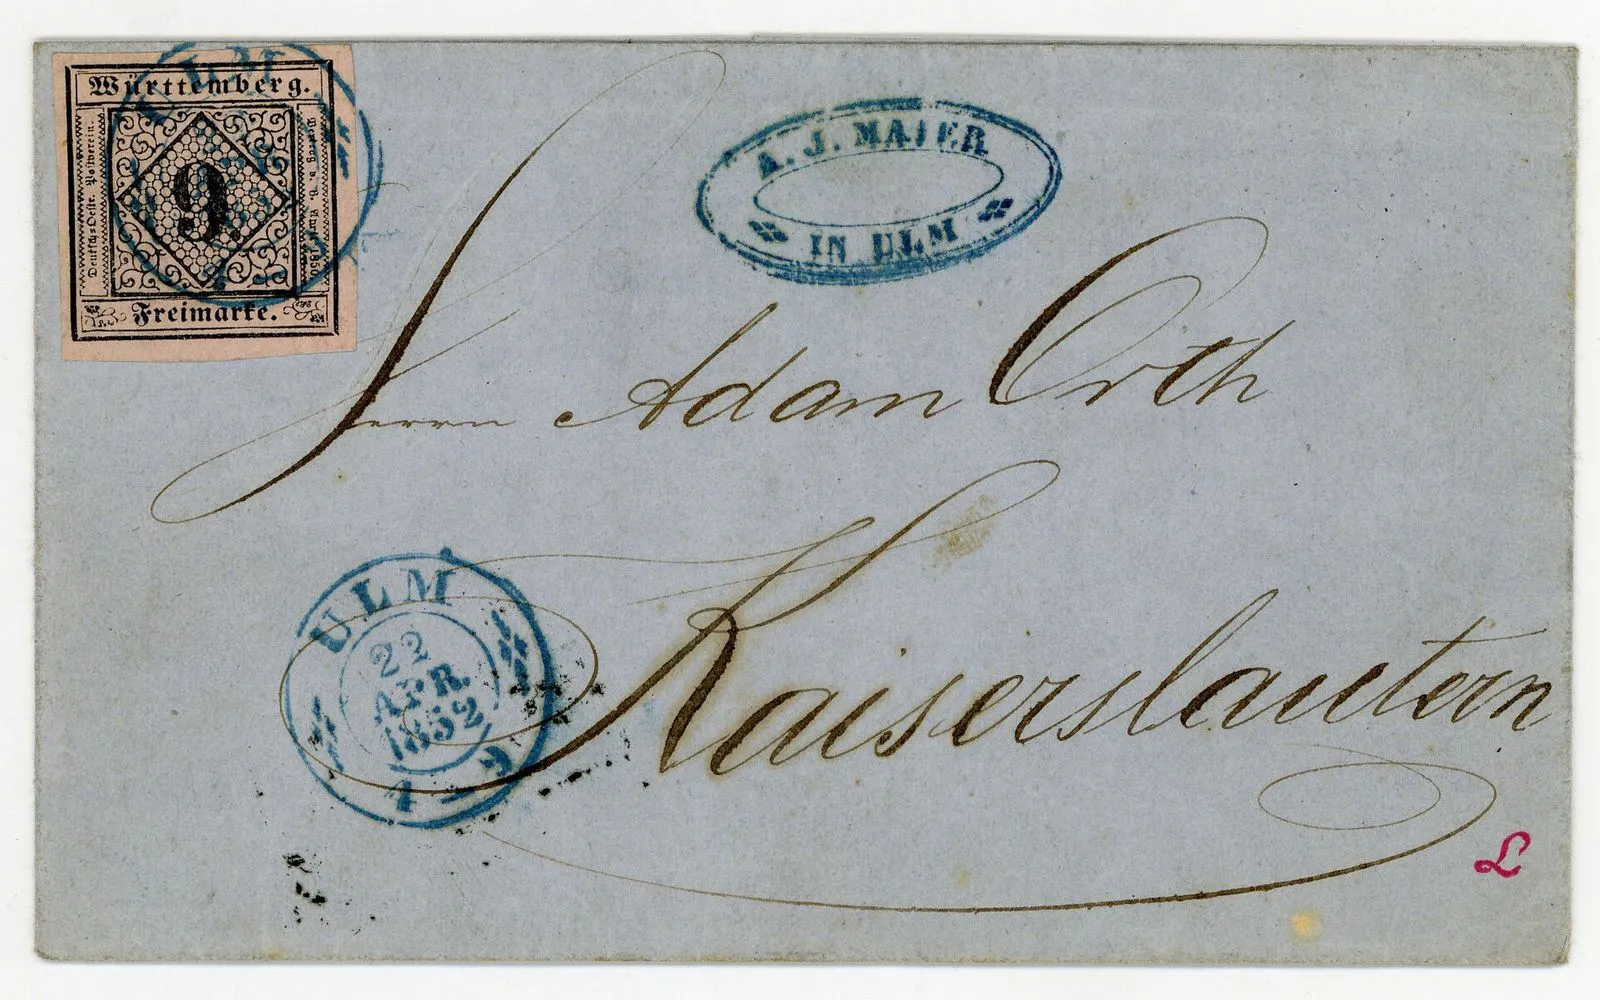 Württemberg.
Deutsch-Oestr. Postverein.
9.
Vertrag v. 6. April 1850
Freimarke.
ULM
A. J. MAIER
IN ULM
Herrn Adam Orth
Kaiserslautern
ULM
22
APR.
1852
L